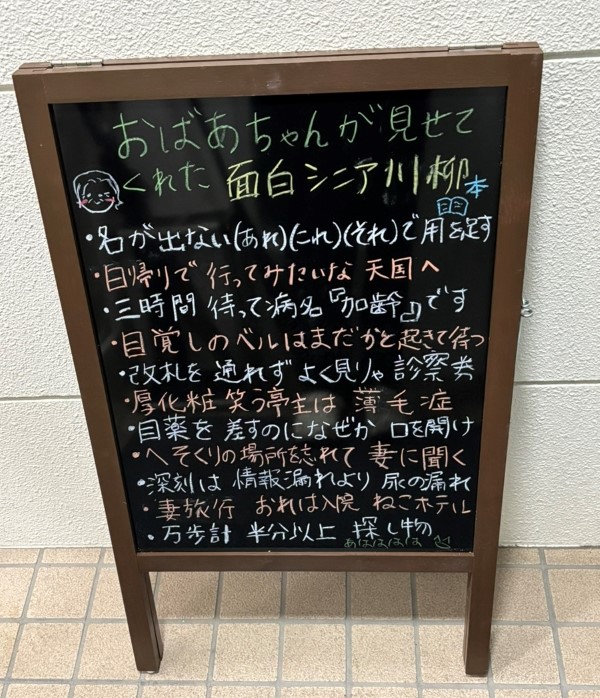 おばあちゃんが見せて
くれた 面白シニア川柳 本
・名が出ない(あれ)(これ)(それ)で用を足す
・日帰りで 行ってみたいな 天国へ
・三時間 待って病名『加齢』です
・目覚しのベルはまだかと起きて待つ
・改札を 通れず よく見りゃ 診察券
・厚化粧 笑う亭主は 薄毛症
・目薬を 差すのになぜか 口を開け
・へそくりの場所を忘れて 妻に聞く
・深刻は 情報漏れより 尿の漏れ
・妻旅行 おれは入院 ねこホテル
・万歩計 半分以上 探し物
あはははは